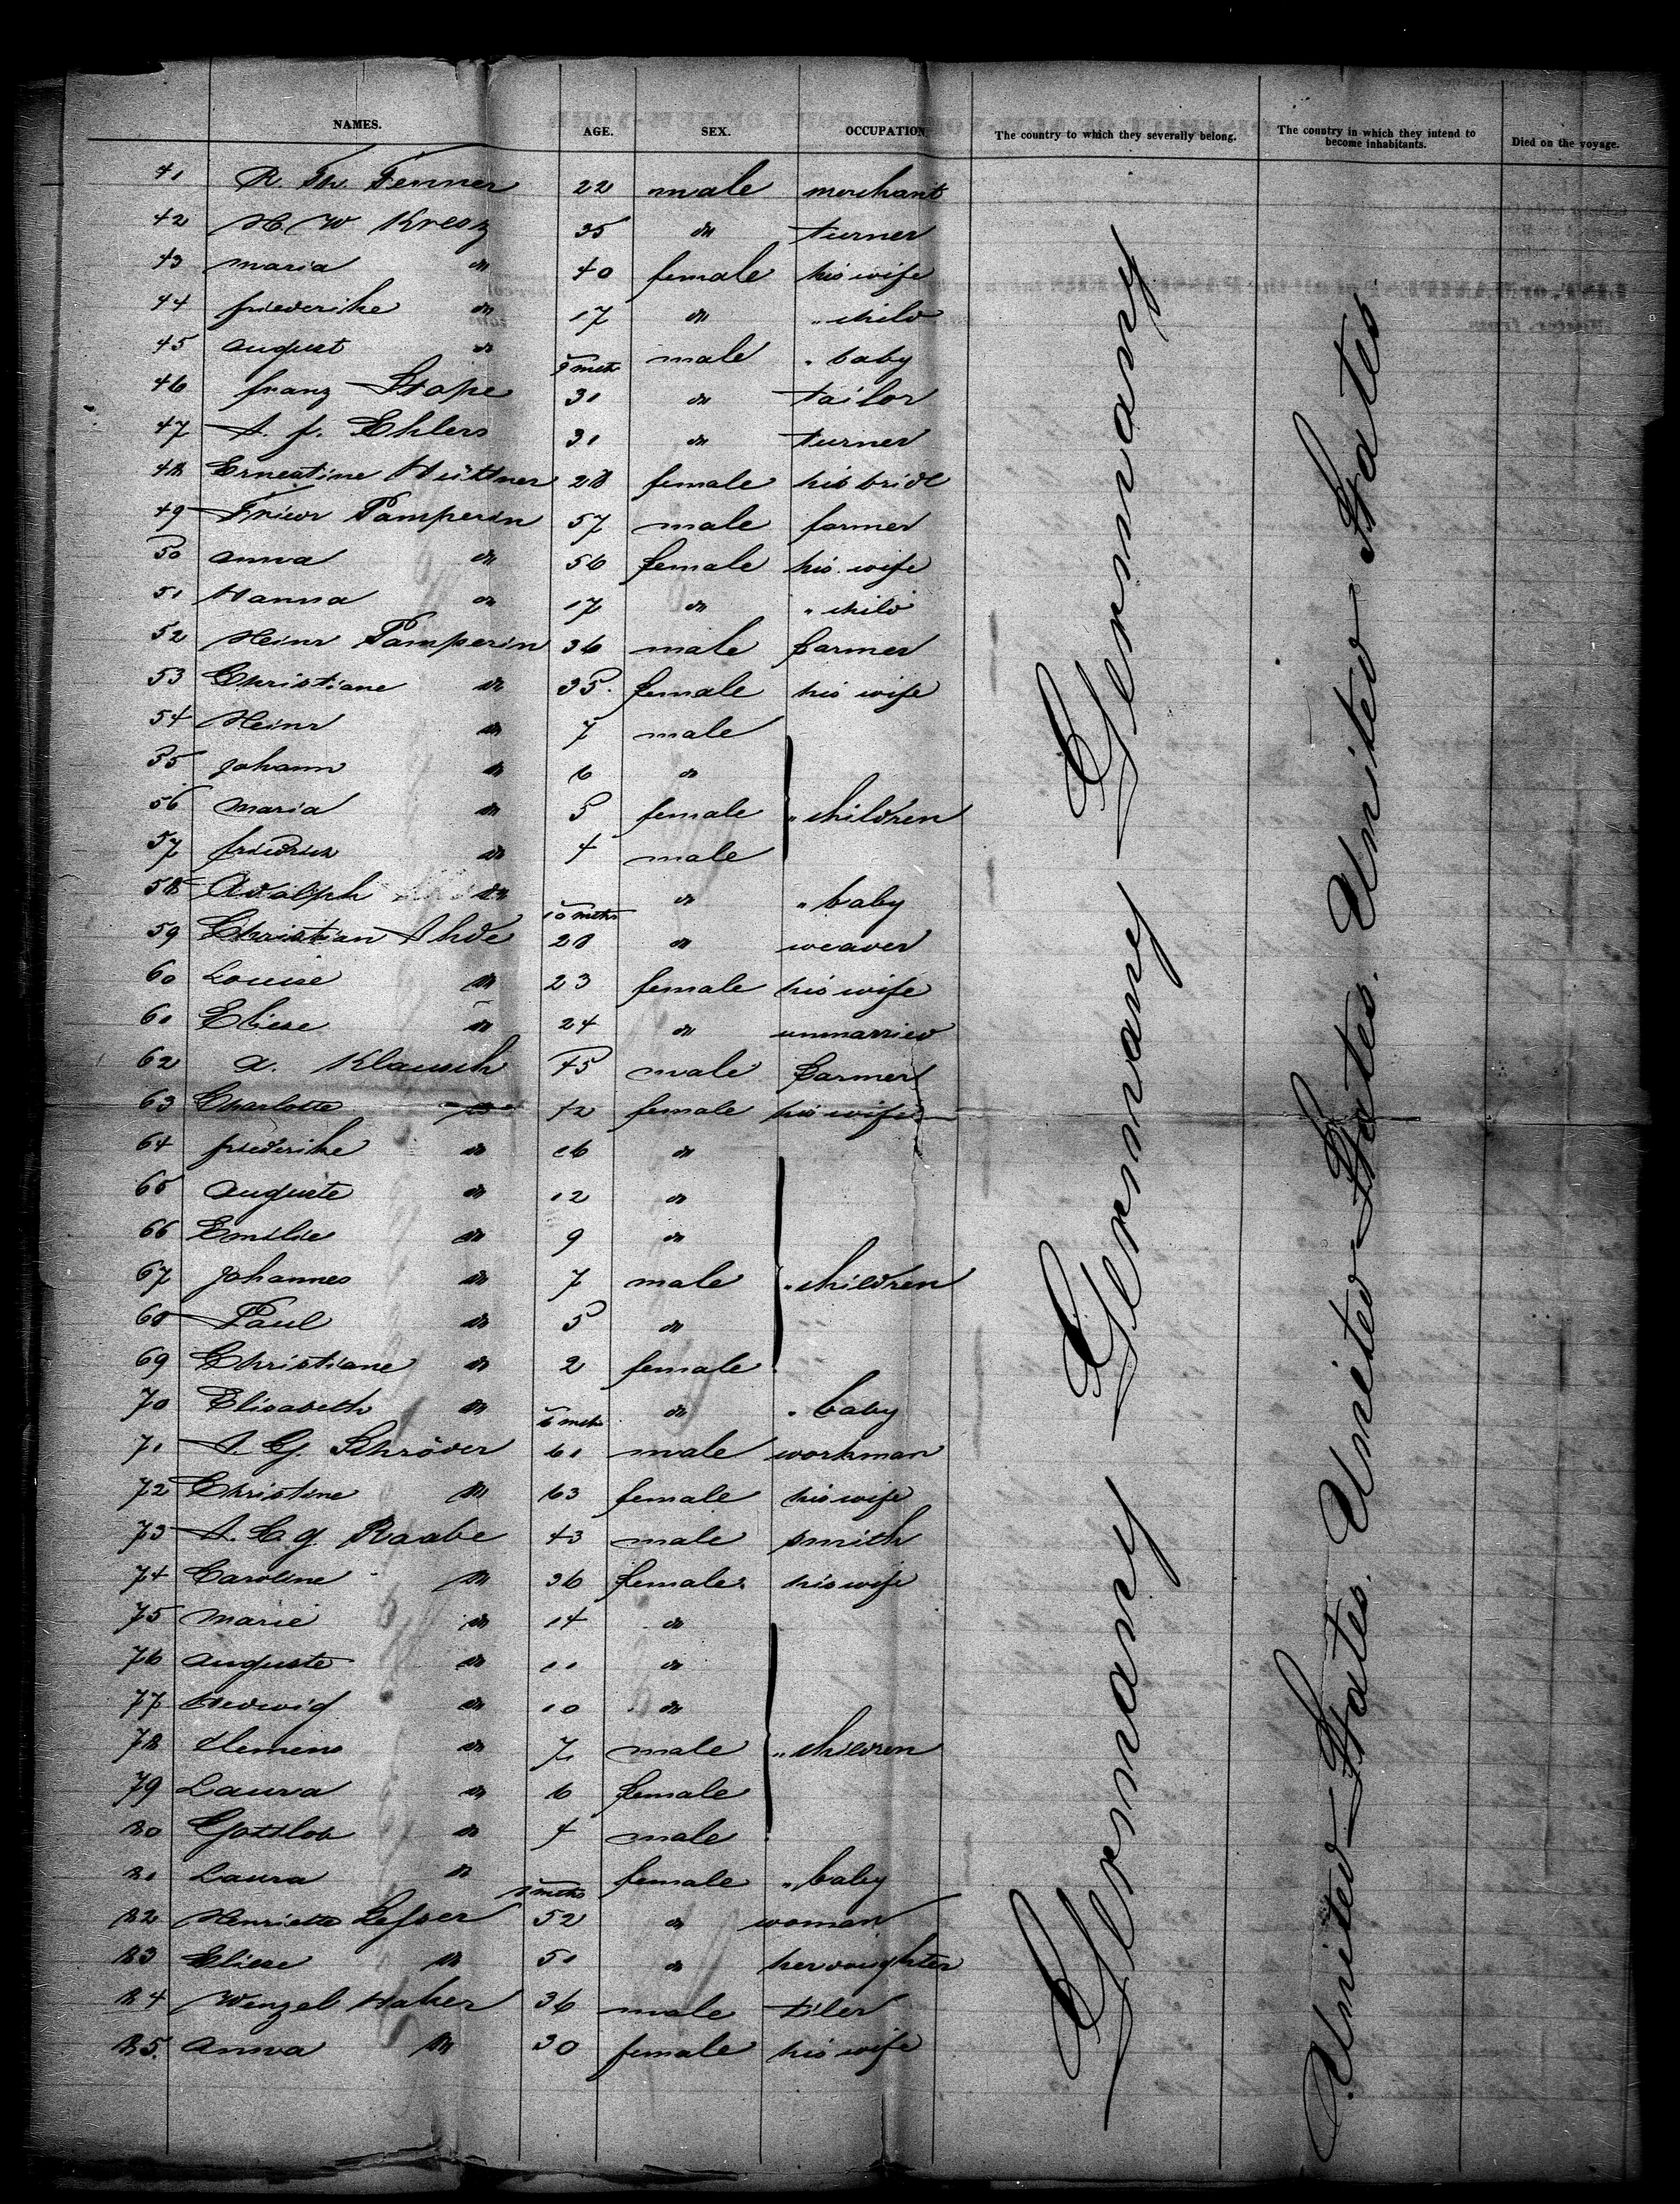 NAMES. AGE. SEX. OCCUPATION. The country to which they severally belong. The country in which they intend to become inhabitants. Died on the voyage.
41 R. Th. Fenner 22 male merchant
42 H. W Kresz 35 do turner
43 Maria do 40 female his wife
44 Friederike do 17 do " child
45 August do 9 mths male " baby
46 Franz Stope 31 do tailor
47 A. J. Ehlers 31 do turner
48 Ernestine Hüttner 28 female his bride
49 Friedr Pamperin 57 male farmer
50 Anna do 56 female his wife
51 Hanna do 17 do " child
52 Heinr Pamperin 36 male farmer
53 Christiane do 35 female his wife
54 Heinr do 7 male
55 Johann do 6 do
56 Maria do 5 female " children
57 Friedrich do 4 male
58 Adolph do 10 mths do " baby
59 Christian Ahde 28 do weaver
60 Louise do 23 female his wife
61 Eliese do 24 do unmarried
62 A. Klausch 45 male farmer
63 Charlotte do 42 female his wife
64 Friederike do 16 do
65 Auguste do 12 do
66 Emilie do 9 do
67 Johannes do 7 male " children
68 Paul do 5 do
69 Christiane do 2 female
70 Elisabeth do 6 mths do " baby
71 A. G. Schröder 61 male workman
72 Christine do 63 female his wife
73 A. C. G. Raabe 43 male smith
74 Caroline do 36 female his wife
75 Marie do 14 do
76 Auguste do 11 do
77 Hedwig do 10 do
78 Clemens do 7 male " children
79 Laura do 6 female
80 Gottlob do 4 male
81 Laura do mths female " baby
82 Henriette Lesser 52 do woman
83 Eliese do 51 do her daughter
84 Wenzel Haker 36 male tiler
85. Anna do 30 female his wife
Germany Germany Germany Germany
United States. United States. United States